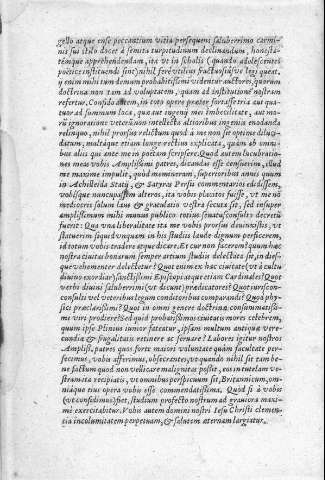 gello atque ense peccantium vitia persequens saluberrimo carmi-
nis sui stilo docet à semita turpitudinum declinandum, honesta-
témque apprehendendam, ita vt in scholis (quando adolescentes
poëticè instituendi sint) nihil ferè vtiliùs fructuosiúsve legi queat.
ij enim mihi tum demum probatissimi videntur auctores, quorum
doctrina non tam ad voluptatem, quàm ad institutionē nostram
refertur. Confido autem, in toto opere præter fortasse tria aut qua-
tuor ad summum loca, quæ aut ingenij mei imbecilitate, aut mo-
rū ignoratione veterū non intellecta altioribus ingenijs enodanda
relinquo, nihil prorsus relictum quod à me non sit optimè diluci-
datum, moltáque etiam longè rectius explicata, quàm ab omni-
bus alijs qui ante me in poëtam scripsere. Quod autem lucubratio-
nes meas vobis Amplissimi patres, dicandas esse censuerim, illud
me maxime impulit, quòd memineram, superioribus annis quum
in Achilleida Statij, & Satyras Persij commentarios edidissem,
vobísque nuncupassem alteros, ita vobis placitos fuisse, vt me nō
mediocris solùm laus & gratulatio vestra secuta sit, sed insuper
amplissimum mihi munus publico totius senatus consulto decretū
fuerit: Qua vna liberalitate ita me vobis prorsus deuinxistis, vt
statuerim siquid vnquam in his studijs laude dignum perficerem,
id totum vobis tradere atque dicare. Et cur non facerem? quum hæc
nostra ciuitas bonarum semper artium studijs delectata sit, in dies-
que vehementer delectetur? Quot enim ex hac ciuitate (vt à cultu
diuino exordiar) sanctissimi Episcopi atque etiam Cardinales? Quot
verbi diuini saluberrimi (vt dicunt) prædicatores? Quot iuriscon-
consulti vel veteribus legum conditoribus comparandi? Quot phy-
sici præclarissimi? Quot in omni genere doctrinæ consummatissi-
mi viri prodiere? Sed quid probatissimos ciuitatis mores celebrem,
quum ipse Plinius iunior fateatur, ipsam multum antiquæ vere-
cundiæ & frugalitatis retinere ac seruare? Labores igitur nostros
Amplissi. patres quos forte maiori voluntate quàm facultate per-
fecimus, vobis afferimus, obsecrantes, vt quando nihil sit tam be-
ne factum quod non vellicare malignitas possit, eos in tutelam ve-
stram ita recipiatis, vt omnibus perspicuum sit, Britannicum, om-
niáque eius opera vobis esse commendatissima. Quòd si à vobis
(vt confidimus) fiet, studium profecto nostrum ad grauiora maxi-
mi exercitabitur. Vobis autem domini nostri Iesu Christi clemen-
tia incolumitatem perpetuam, & salutem æternam largiatur.